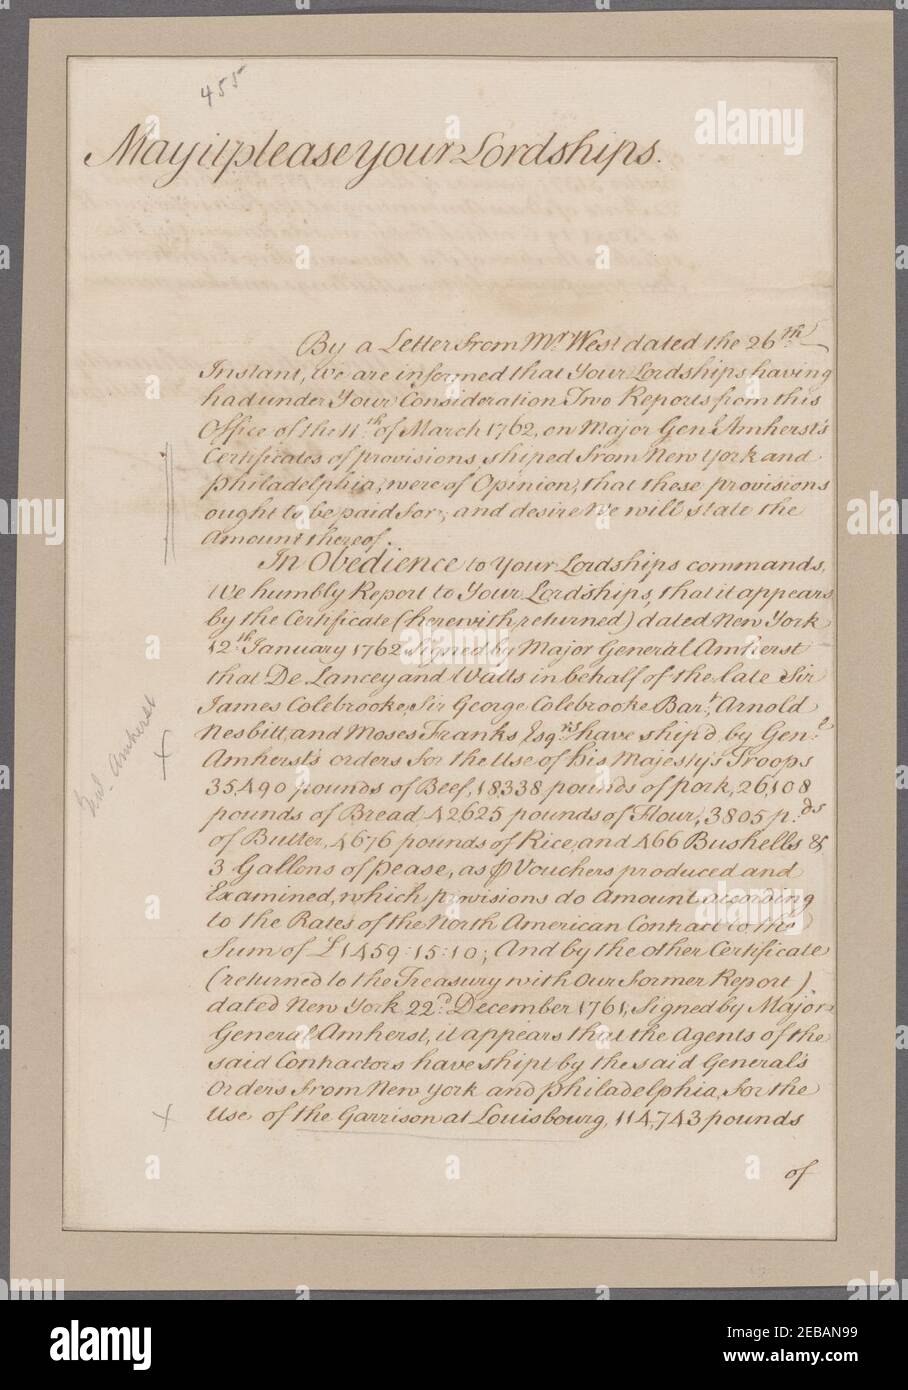 455
May it please your Lordships.
By a Letter from Mr. West dated the 26th
Instant, We are informed that Your Lordships having
had under Your Consideration Two Reports from this
Office of the 11th of March 1762, on Major Genl. Amherst's
Certificates of provisions shiped from New York and
Philadelphia, were of Opinion, that these provisions
ought to be paid for, and desire We will state the
Amount thereof.
In Obedience to Your Lordships commands,
We humbly Report to Your Lordships, that it appears
by the Certificate (herewith returned) dated New York
12th January 1762 Signed by Major General Amherst
that De Lancey and Watts in behalf of the late Sir
James Colebrooke, Sir George Colebrooke Bart., Arnold
Nesbitt, and Moses Franks Esqrs. have ship'd by Genl.
Amherst's orders for the Use of his Majesty's Troops
35,490 pounds of Beef, 18338 pounds of pork, 26,108
pounds of Bread 42625 pounds of Flour, 3805 p.ds
of Butter, 4676 pounds of Rice, and 466 Bushells &
3 Gallons of pease, as ⅌ Vouchers produced and
Examined, which provisions do Amount according
to the Rates of the North American Contract to the
Sum of £1459:15:10; And by the other Certificate
(returned to the Treasury with Our former Report)
dated New York 22d. December 1761, Signed by Major
General Amherst, it appears that the Agents of the
said Contractors have shipt by the said General's
Orders from New York and philadelphia, for the
Use of the Garrison at Louisbourg, 114,743 pounds
of
Amherst
alamy
Image ID: 2EBAN99
www.alamy.com